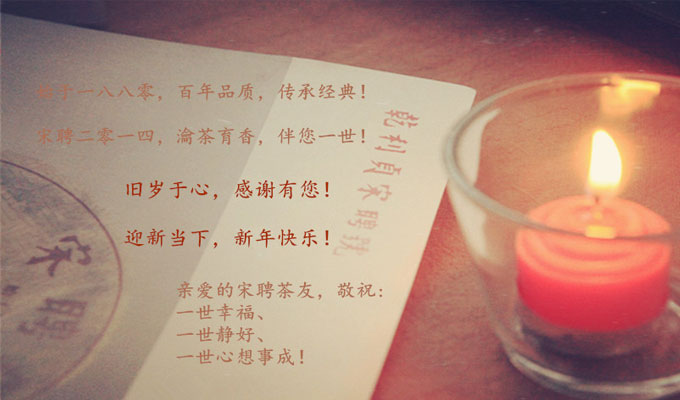 始于一八八零，百年品质，传承经典！
宋聘二零一四，瀹茶育香，伴您一世！
旧岁于心，感谢有您！
迎新当下，新年快乐！
亲爱的宋聘茶友，敬祝：
一世幸福、
一世静好、
一世心想事成！
乾利貞宋聘號
宋聘